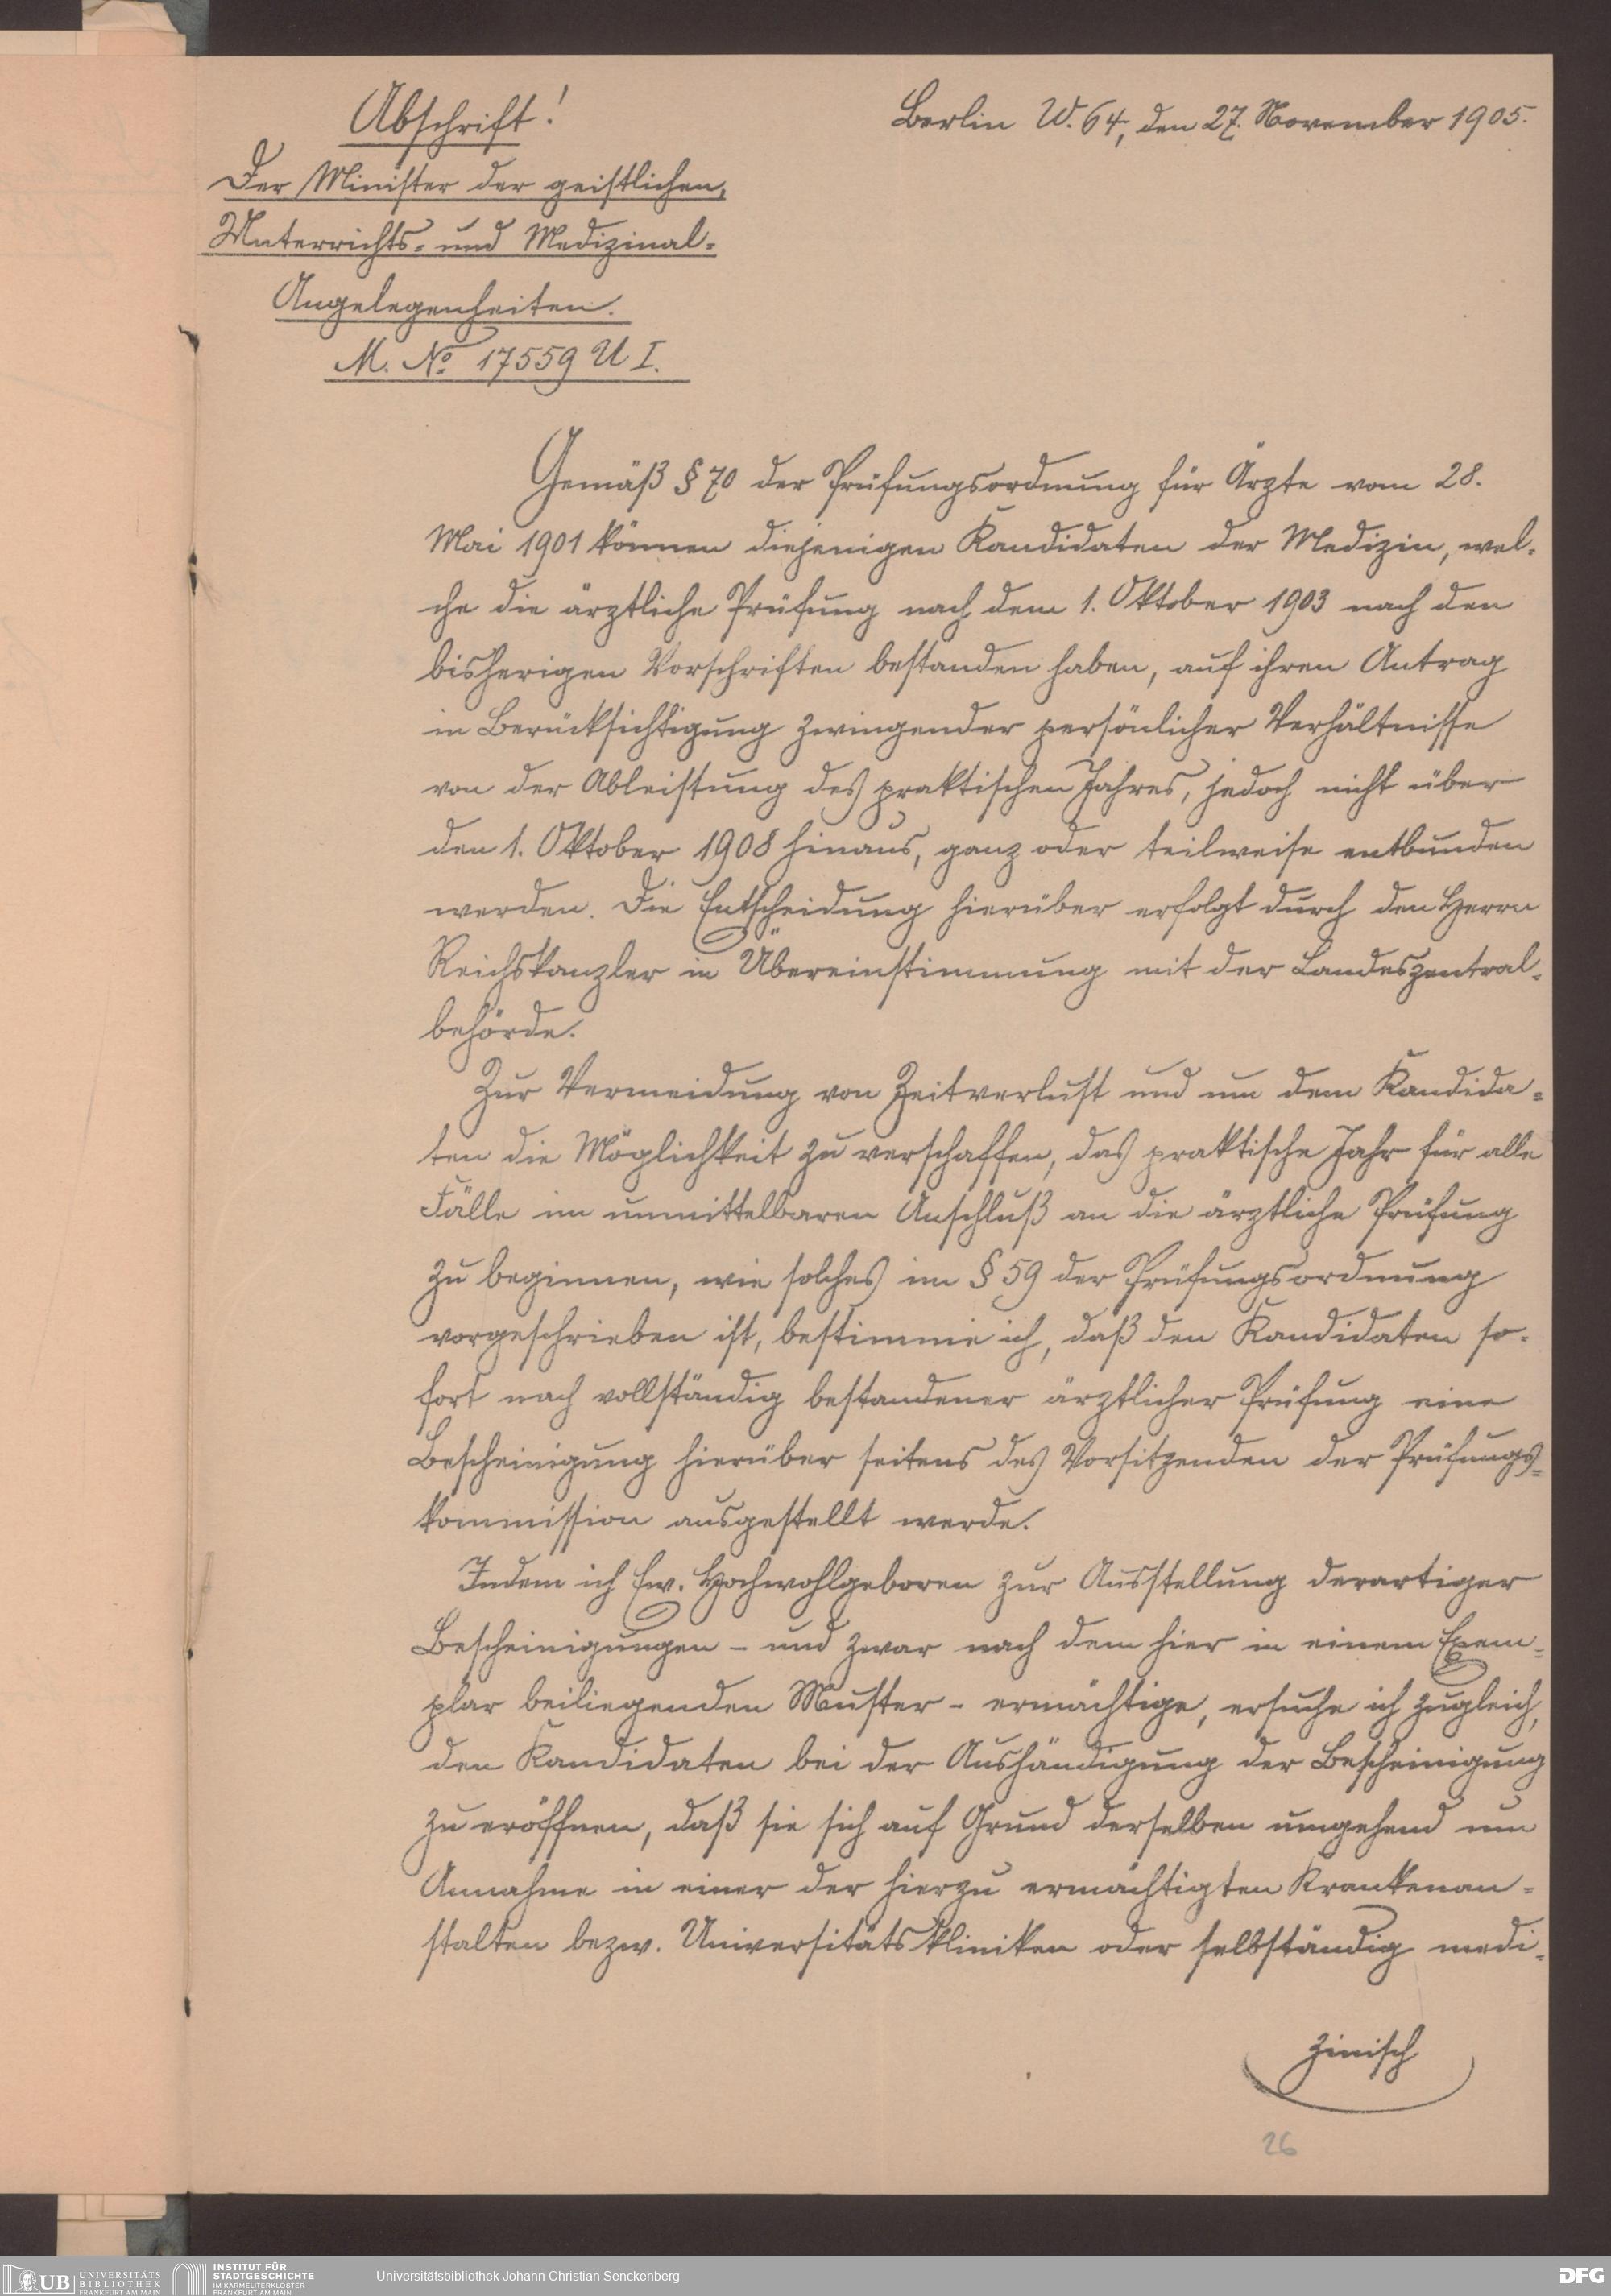 Abschrift!
Berlin W. 64, den 27. November 1905.
Der Minister der geistlichen,
Unterrichts- und Medizinal-
Angelegenheiten.
M. No 17559 U I.
Gemäß § 70 der Prüfungsordnung für Ärzte vom 28.
Mai 1901 können diejenigen Kandidaten der Medizin, wel-
che die ärztliche Prüfung nach dem 1. Oktober 1903 nach den
bisherigen Vorschriften bestanden haben, auf ihren Antrag
in Berücksichtigung zwingender persönlicher Verhältnisse
von der Ableistung des praktischen Jahres, jedoch nicht über
den 1. Oktober 1908 hinaus, ganz oder teilweise entbunden
werden. Die Entscheidung hierüber erfolgt durch den Herrn
Reichskanzler in Übereinstimmung mit der Landeszentral-
behörde.
Zur Vermeidung von Zeitverlust und um dem Kandida-
ten die Möglichkeit zu verschaffen, das praktische Jahr für alle
Fälle im unmittelbaren Anschluß an die ärztliche Prüfung
zu beginnen, wie solches im § 59 der Prüfungsordnung
vorgeschrieben ist, bestimme ich, daß den Kandidaten so-
fort nach vollständig bestandener ärztlicher Prüfung eine
Bescheinigung hierüber seitens des Vorsitzenden der Prüfungs-
kommission ausgestellt werde.
Indem ich Ew. Hochwohlgeboren zur Ausstellung derartiger
Bescheinigungen - und zwar nach dem hier in einem Exem-
plar beiliegenden Muster - ermächtige, ersuche ich zugleich,
den Kandidaten bei der Aushändigung der Bescheinigung
zu eröffnen, daß sie sich auf Grund derselben umgehend um
Annahme in einer der hierzu ermächtigten Krankenan-
stalten bezw. Universitätskliniken oder selbständig medi-
zinisch
26
UB UNIVERSITÄTS
BIBLIOTHEK
FRANKFURT AM MAIN
INSTITUT FÜR
STADTGESCHICHTE
IM KARMELITERKLOSTER
FRANKFURT AM MAIN
Universitätsbibliothek Johann Christian Senckenberg
DFG